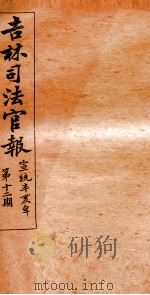 吉林司法官報
宣統辛亥年
第十二期